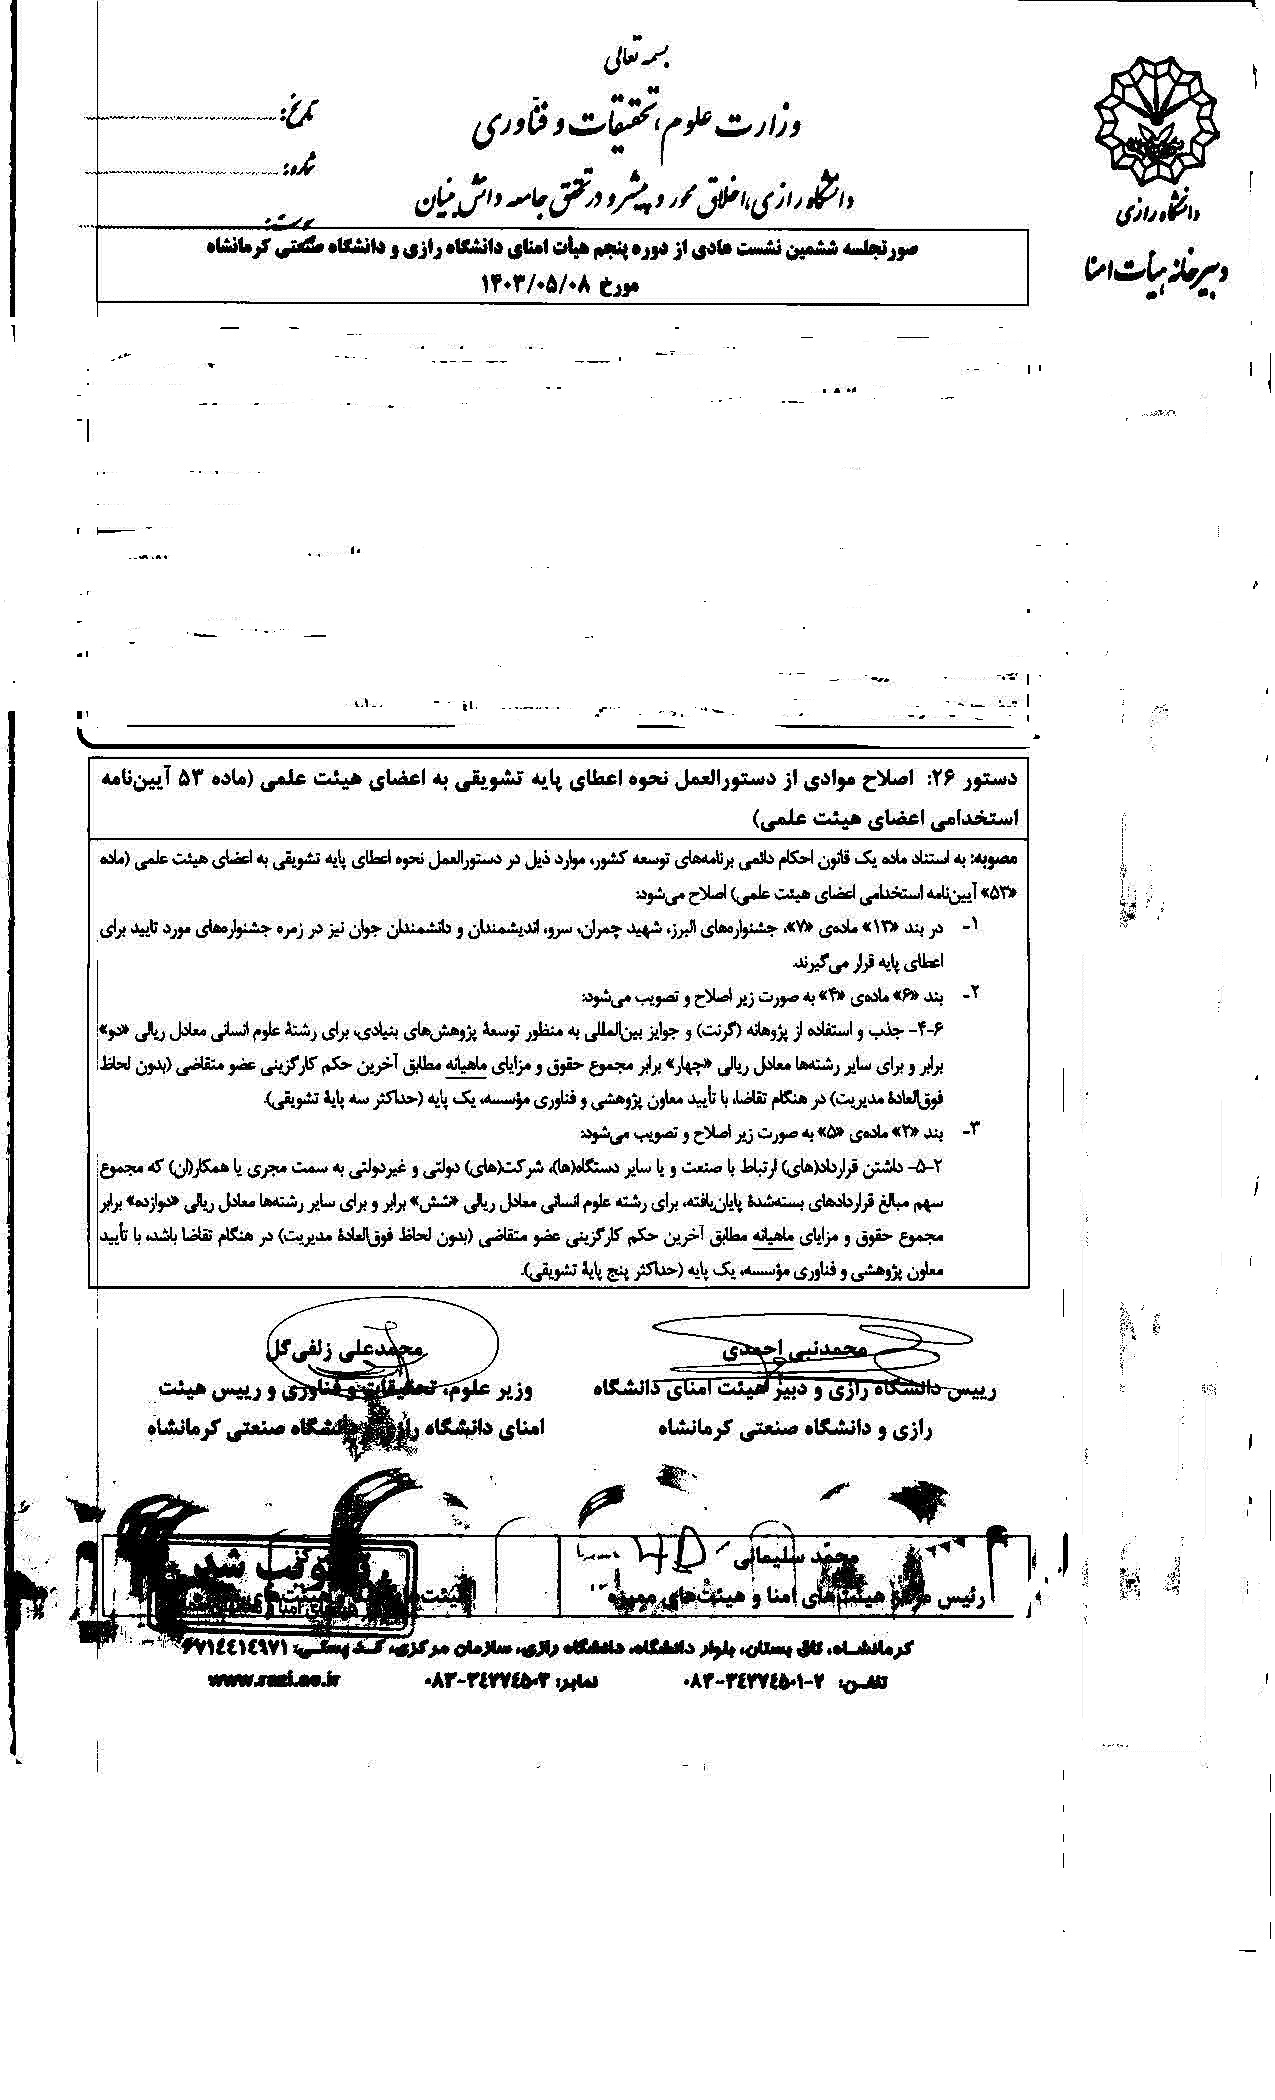 بسمه تعالی
وزارت علوم، تحقیقات و فنّاوری
دانشگاه رازی، اخلاق محور و پیشرو در تحقق جامعه دانش بنیان
تاریخ:
شماره:
پیوست:
دانشگاه رازی
دبیرخانه هیأت امنا
صورتجلسه ششمین نشست عادی از دوره پنجم هیأت امنای دانشگاه رازی و دانشگاه صنعتی کرمانشاه
مورخ ۱۴۰۳/۰۵/۰۸
دستور ۲۶: اصلاح موادی از دستورالعمل نحوه اعطای پایه تشویقی به اعضای هیئت علمی (ماده ۵۳ آیین‌نامه
استخدامی اعضای هیئت علمی)
مصوبه: به استناد ماده یک قانون احکام دائمی برنامه‌های توسعه کشور، موارد ذیل در دستورالعمل نحوه اعطای پایه تشویقی به اعضای هیئت علمی (ماده
«۵۳» آیین‌نامه استخدامی اعضای هیئت علمی) اصلاح می‌شود:
۱- در بند «۱۳» ماده‌ی «۷»، جشنواره‌های البرز، شهید چمران، سرو، اندیشمندان و دانشمندان جوان نیز در زمره جشنواره‌های مورد تایید برای
اعطای پایه قرار می‌گیرند.
۲- بند «۶» ماده‌ی «۴» به صورت زیر اصلاح و تصویب می‌شود:
۴-۶- جذب و استفاده از پژوهانه (گرنت) و جوایز بین‌المللی به منظور توسعهٔ پژوهش‌های بنیادی، برای رشتهٔ علوم انسانی معادل ریالی «دو»
برابر و برای سایر رشته‌ها معادل ریالی «چهار» برابر مجموع حقوق و مزایای ماهیانه مطابق آخرین حکم کارگزینی عضو متقاضی (بدون لحاظ
فوق‌العادهٔ مدیریت) در هنگام تقاضا، با تأیید معاون پژوهشی و فناوری مؤسسه، یک پایه (حداکثر سه پایهٔ تشویقی).
۳- بند «۲» ماده‌ی «۵» به صورت زیر اصلاح و تصویب می‌شود:
۵-۲- داشتن قرارداد(های) ارتباط با صنعت و یا سایر دستگاه(ها)، شرکت(های) دولتی و غیردولتی به سمت مجری یا همکار(ان) که مجموع
سهم مبالغ قراردادهای بسته‌شدهٔ پایان‌یافته، برای رشته علوم انسانی معادل ریالی «شش» برابر و برای سایر رشته‌ها معادل ریالی «دوازده» برابر
مجموع حقوق و مزایای ماهیانه مطابق آخرین حکم کارگزینی عضو متقاضی (بدون لحاظ فوق‌العادهٔ مدیریت) در هنگام تقاضا باشد، با تأیید
معاون پژوهشی و فناوری مؤسسه، یک پایه (حداکثر پنج پایهٔ تشویقی).
محمدنبی احمدی
رییس دانشگاه رازی و دبیر هیئت امنای دانشگاه
رازی و دانشگاه صنعتی کرمانشاه
محمدعلی زلفی‌گل
وزیر علوم، تحقیقات و فناوری و رییس هیئت
امنای دانشگاه رازی و دانشگاه صنعتی کرمانشاه
محمد سلیمانی
رئیس مرکز هیئت‌های امنا و هیئت‌های ممیزه
کرمانشاه، تاق بستان، بلوار دانشگاه، دانشگاه رازی، سازمان مرکزی، کد پستی: ۶۷۱۴۴۱۴۹۷۱
تلفن: ۰۸۳-۳۴۲۷۴۵۰۱-۲ نمابر: ۰۸۳-۳۴۲۷۴۵۰۳ www.razi.ac.ir